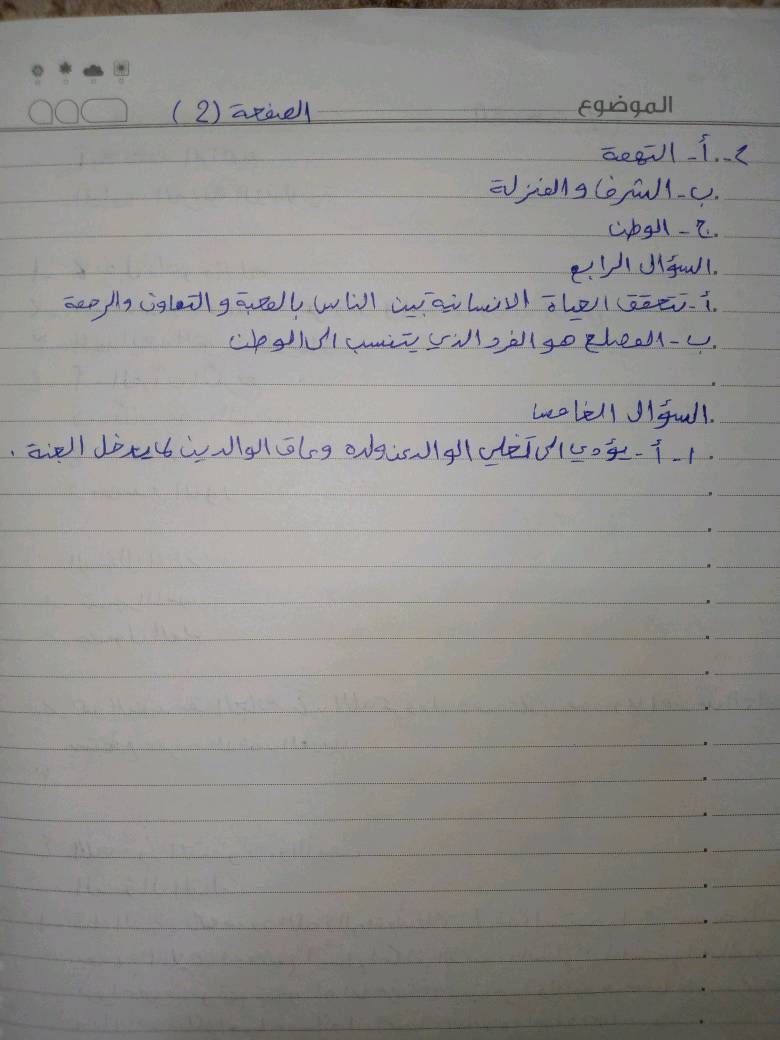 الموضوع الصفحة (2)
2-.أ- التهمة
ب- الشرف والمنزلة
ج- الوطن
السؤال الرابع
أ- تتحقق الحياة الانسانية بين الناس بالمحبة والتعاون والرحمة
ب- المصلح هو الفرد الذي يتنسب الى الوطن
السؤال الخامس
1- أ- يؤدي الى تخلي الوالد عن ولده وعاق الوالدين لا يدخل الجنة.